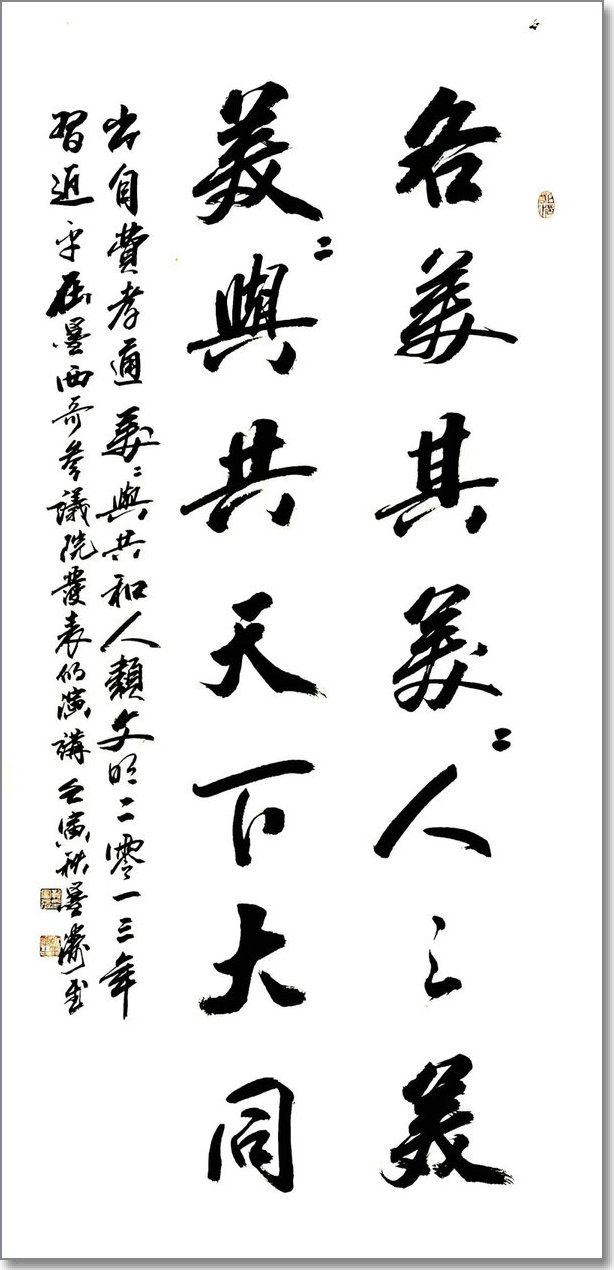 各美其美〻人之美
美〻與共天下大同
出自費孝通美〻與共和人類文明二零一三年
習近平在墨西哥參議院發表的演講壬寅秋墨濤